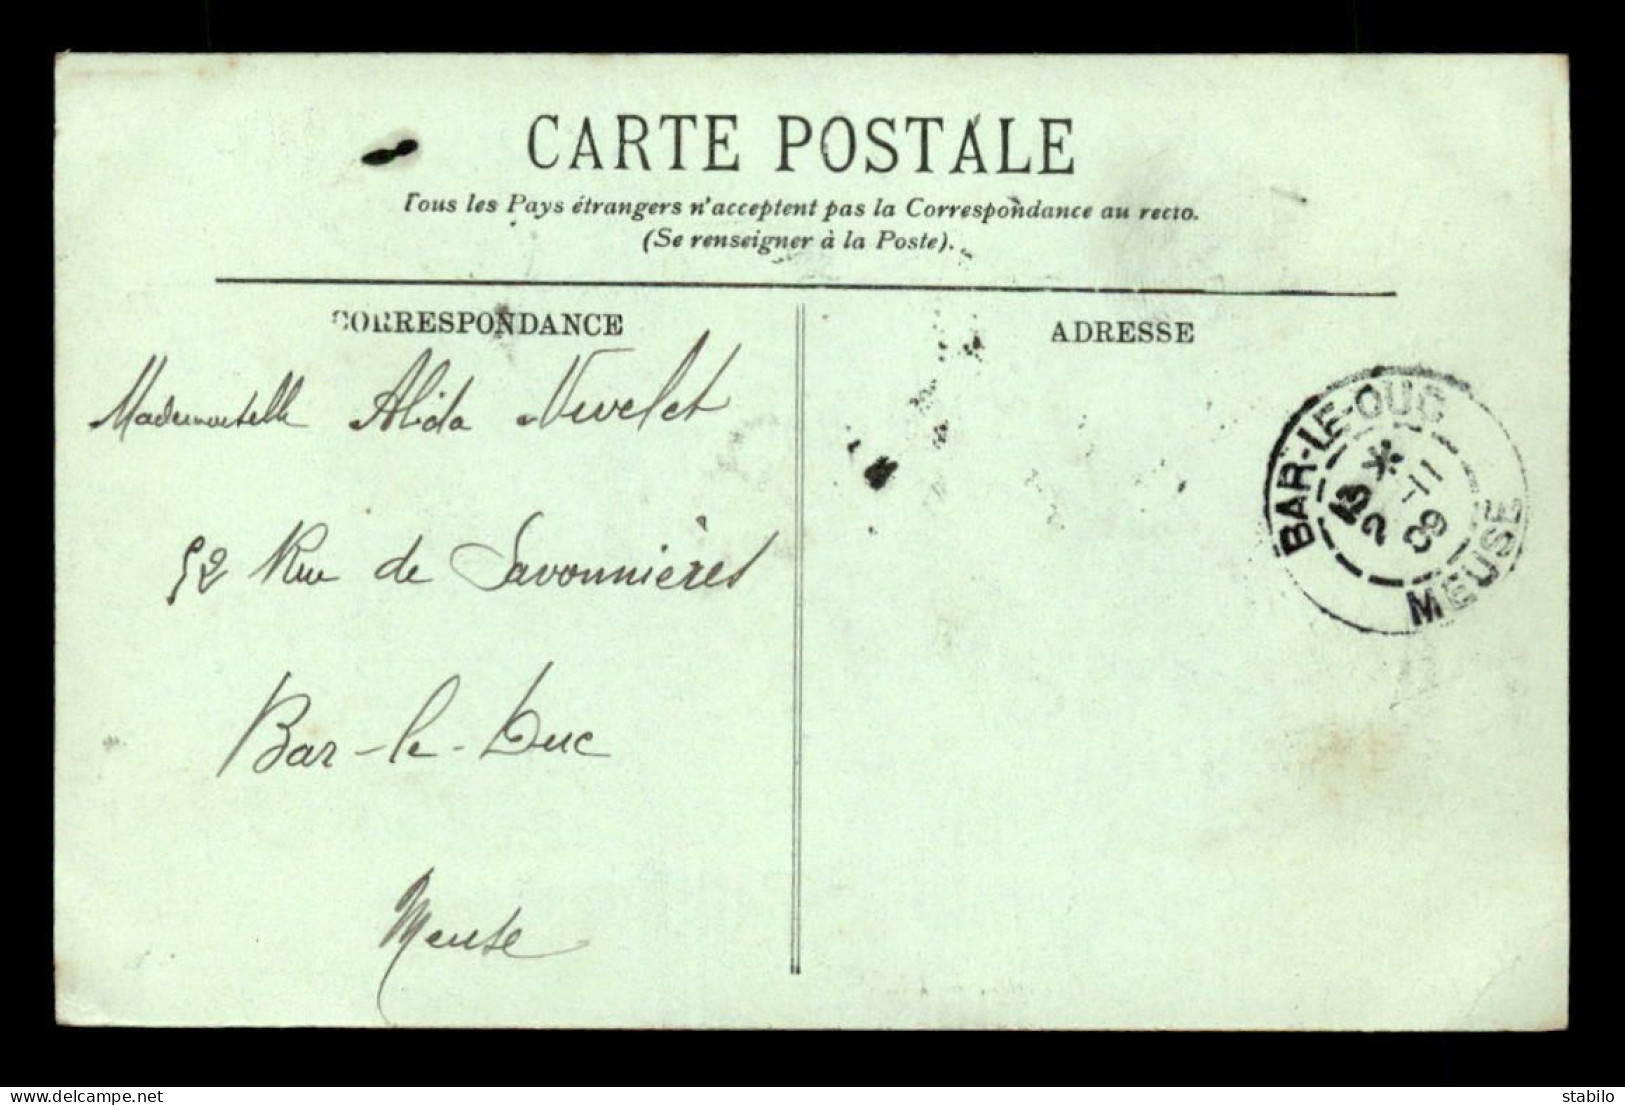 CARTE POSTALE
Tous les Pays étrangers n'acceptent pas la Correspondance au recto.
(Se renseigner à la Poste).
CORRESPONDANCE
ADRESSE
Mademoiselle Alida
52 Rue de Savonnières
Bar-le-Duc
Meuse
BAR-LE-DUC
2 -11
09
MEUSE
delcampe.net
sabilo